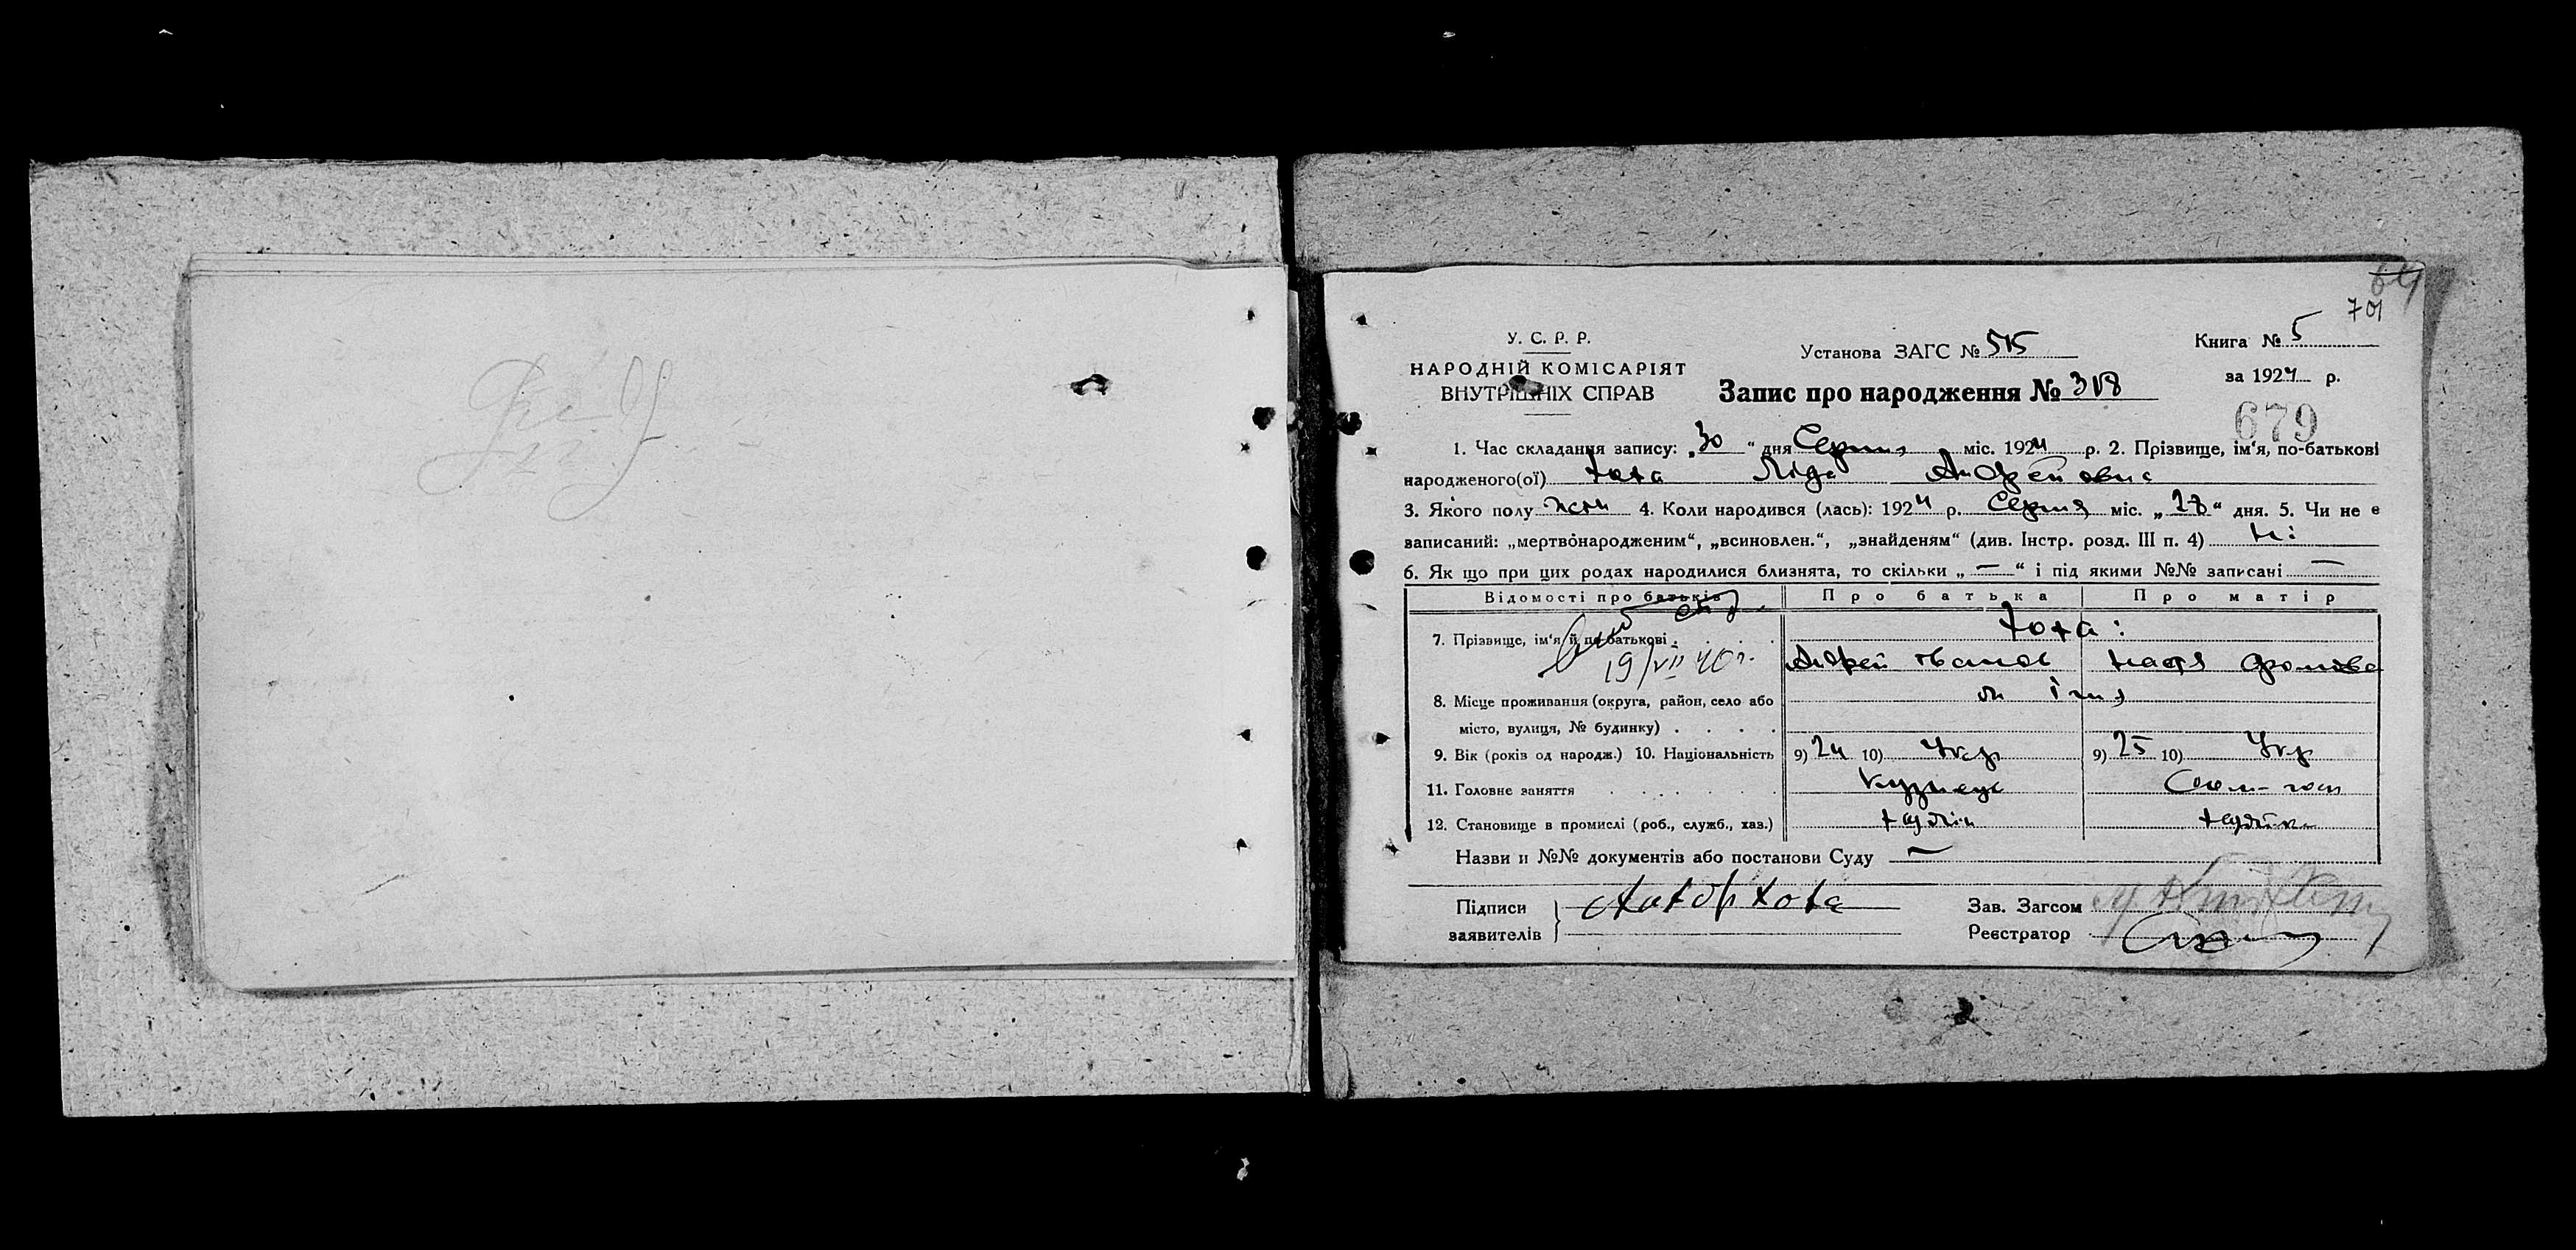 701
У. С. Р. Р.
НАРОДНІЙ КОМІСАРІЯТ
ВНУТРІШНІХ СПРАВ
Установа ЗАГС № 515
Книга № 5
за 1924 р.
Запис про народження № 318
679
1. Час складання запису: „30“ дня Серпня міс. 1924 р. 2. Прізвище, ім‘я, по-батькові
народженого(ої) Хота Ліда Андреєвна
3. Якого полу жен 4. Коли народився (лась): 1924 р. Серпня міс. „28“ дня. 5. Чи не є
записаний: „мертвонародженим“, „всиновлен.“, „знайденям“ (див. Інстр. розд. III п. 4) Ні
6. Як що при цих родах народилися близнята, то скільки „—“ і під якими №№ записані —
Відомості про батьків Про батька Про матір
7. Прізвище, ім‘я й по-батькові Хота:
Андрей Іванов Настя
19/VII 40 г.
8. Місце проживання (округа, район, село або
місто, вулиця, № будинку)
9. Вік (років од народж.) 10. Національність 9) 24 10) Укр 9) 25 10) Укр
11. Головне заняття Кузнец
12. Становище в промислі (роб., служб., хаз.)
Назви и №№ документів або постанови Суду —
Підписи
заявителів
Хота
Зав. Загсом
Реєстратор